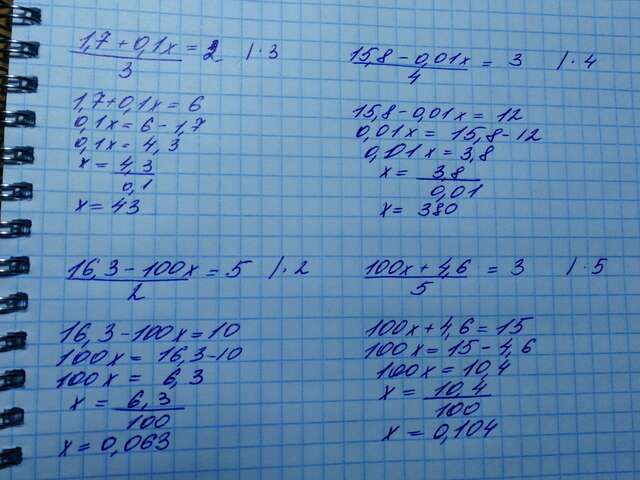 (1,7 + 0,1x)/3 = 2 | · 3
1,7 + 0,1x = 6
0,1x = 6 - 1,7
0,1x = 4,3
x = 4,3/0,1
x = 43
(15,8 - 0,01x)/4 = 3 | · 4
15,8 - 0,01x = 12
0,01x = 15,8 - 12
0,01x = 3,8
x = 3,8/0,01
x = 380
(16,3 - 100x)/2 = 5 | · 2
16,3 - 100x = 10
100x = 16,3 - 10
100x = 6,3
x = 6,3/100
x = 0,063
(100x + 4,6)/5 = 3 | · 5
100x + 4,6 = 15
100x = 15 - 4,6
100x = 10,4
x = 10,4/100
x = 0,104